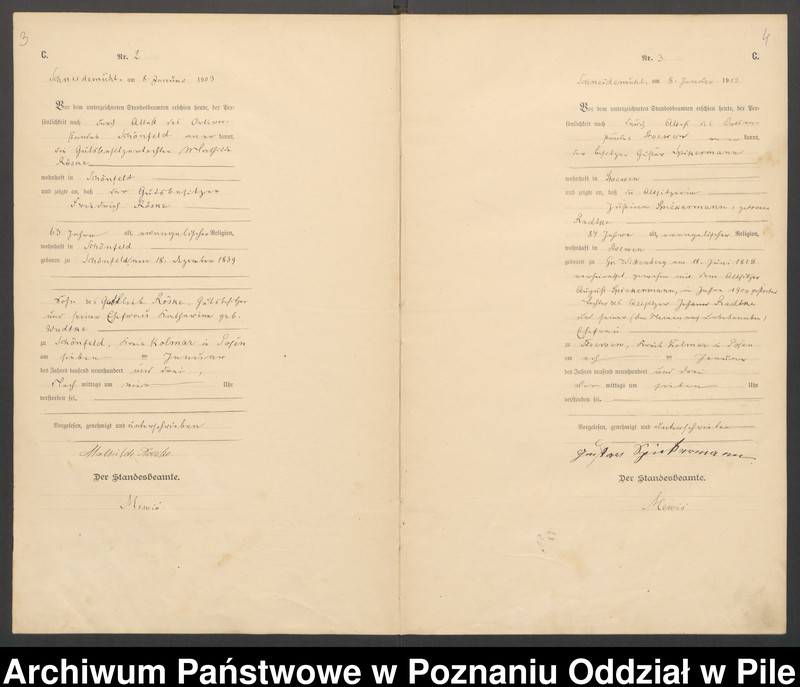 3
C.
Nr. 2
Schneidemühl, am 8. Januar 1903
Vor dem unterzeichneten Standesbeamten erschien heute, der Per-
sönlichkeit nach durch Attest des Ortsvor-
standes Schönfeld anerkannt,
die Gutsbesitzertochter Mathilde
Röske
wohnhaft in Schönfeld
und zeigte an, daß der Gutsbesitzer
Friedrich Röske
63 Jahre alt, evangelischer Religion,
wohnhaft in Schönfeld
geboren zu Schönfeld am 18. Dezember 1839
Sohn des Röske, Gutsbesitzer
und seiner Ehefrau Katharina geb.
Wudtke
zu Schönfeld, Kreis Kolmar in Posen
am sieben Januar
des Jahres tausend neunhundert und drei,
Nach mittags um Uhr
verstorben sei.
Vorgelesen, genehmigt und unterschrieben
Mathilde Roeske
Der Standesbeamte.
Mewis
4
Nr. 3
C.
Schneidemühl, am 8. Januar 1903.
Vor dem unterzeichneten Standesbeamten erschien heute, der Per-
sönlichkeit nach durch Attest des
kannt,
der Besitzer Gustav Spickermann
wohnhaft in
und zeigte an, daß die Altsitzerin
Justine Spickermann, geborene
Radtke
84 Jahre alt, evangelischer Religion,
wohnhaft in
geboren zu Gr. Wittenberg am 18. Juni 1818
verheiratet gewesen mit dem Altsitzer
August Spickermann, im Jahre 1900 gestorben
Tochter des Altsitzer Johann Radtke
und seiner (dem Namen nach unbekannten)
Ehefrau
zu Kreis Kolmar in Posen
am acht Januar
des Jahres tausend neunhundert und drei
Vor mittags um sieben Uhr
verstorben sei.
Vorgelesen, genehmigt und unterschrieben
Gustav Spickermann
Der Standesbeamte.
Mewis
Archiwum Państwowe w Poznaniu Oddział w Pile